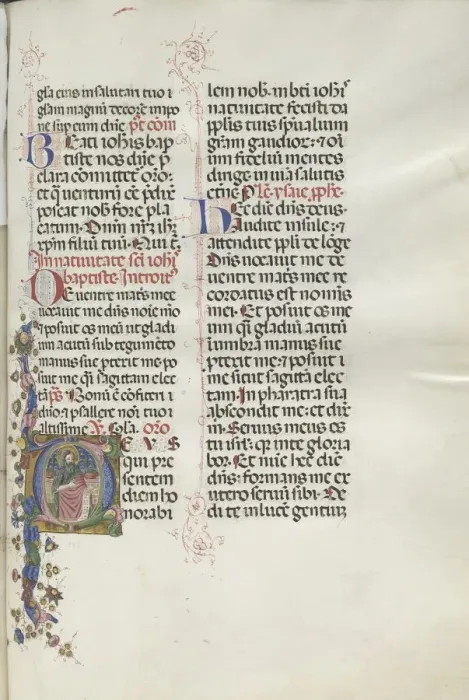 gla eius in salutari tuo i
glam magnū decorē impo
ne sup eum dn̄e p̄t com̄
Beati iohīs bap
tiste nos dn̄e p̄
clara comitet̄ oro:
et q̄ uenturū eē p̄dix̄
poscat nob̄ fore pla
catum. Dnm nr̄z ihm̄
xp̄m filiū tuū. Qui t̄.
In natiuitate sc̄i ioh̄i
baptiste Introit᷒
De uentre matr̄s mee
uocauit me dn̄s noīe mō
⁊ posuit os meū ut gladi
um acutū sub tegumēto
manus sue p̄texit me po
suit me q̄i sagittam elec
tā p̄s Bonū ē cōfiteri
dn̄o: ⁊ psallere noī tuo
altissime. V. Gla. oro
DEVS
qui pre
sentem
diem ho
norabi
lem nob̄. in bt̄i ioh̄i᷒
natiuitate fecisti da
pplīs tuis sp̄ualium
gr̄am gaudior̄: ⁊ oī
um fidelium mentes
dirige in uiā salutis
etn̄e P̄ Le. ysaie pp̄he.
Hec dic̄ dn̄s deus.
Audite insule: ⁊
attendite ppl̄i de lōge
Dn̄s uocauit me de
uentre matr̄s mee re
cordatus est noīnis
mei. Et posuit os me
um q̄i gladiū acutū
in umbra manus sue
p̄texit me: ⁊ posuit
me sicut sagittā elec
tam. In pharatra sua
abscondit me: et dix̄
m̄. Seruus meus es
tu isrl̄: q̄ in te gloria
bor. Et nūc hec dic̄
dn̄s: formans me ex
utero seruū sibi. De
di te in lucē gentiuz